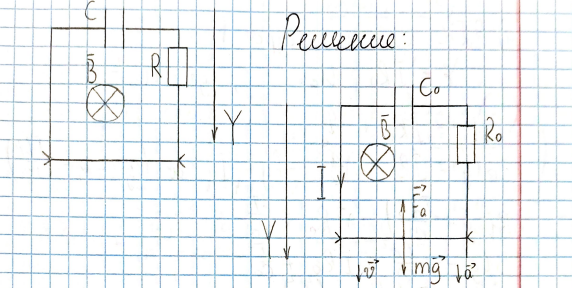 C
B̄
R
Y
Решение:
C₀
B̄
R₀
I
F⃗a
Y
v⃗
mg⃗
a⃗